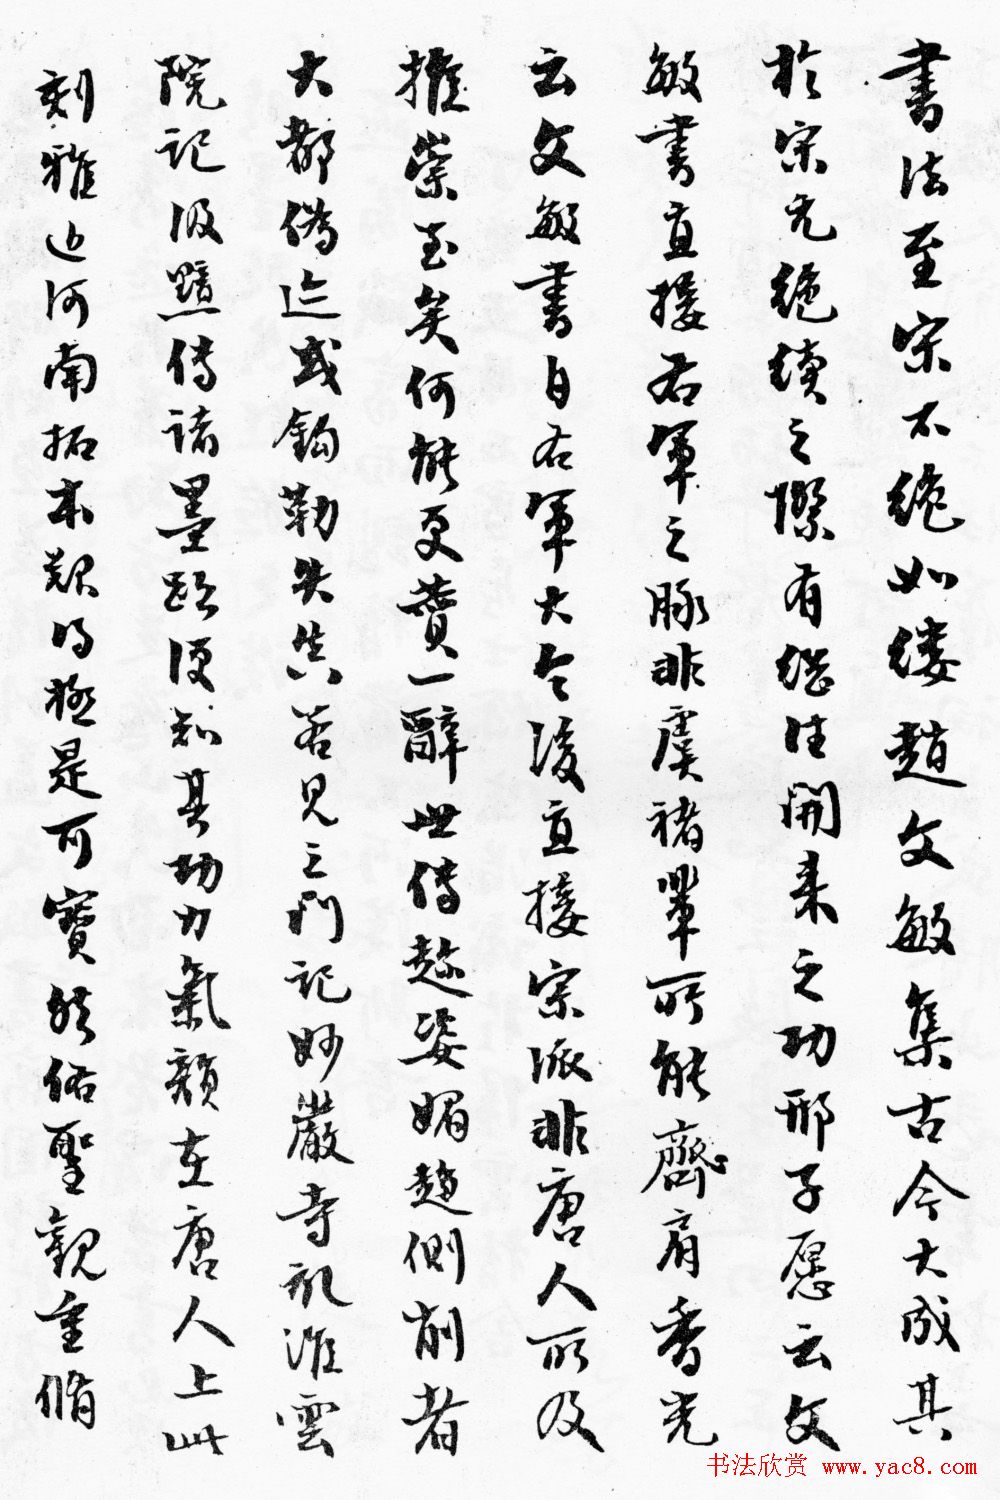 書法至宋不絶如縷趙文敏集古今大成其
於宋元絶續之際有繼往開來之功邢子愿云文
敏書直接右軍之脉非虞褚輩所能齊肩香光
云文敏書自右軍大令後直接宗派非唐人所及
推崇至矣何能更費一辭世傳趙姿媚趫側削者
大都僞迹或鈎勒失真若見三門記妙嚴寺記淮雲
院記汲黯傳諸墨蹟便知其功力氣韻在唐人上此
刻雅近河南拓本雖明極是可寶然佑聖觀重脩
书法欣赏 www.yac8.com